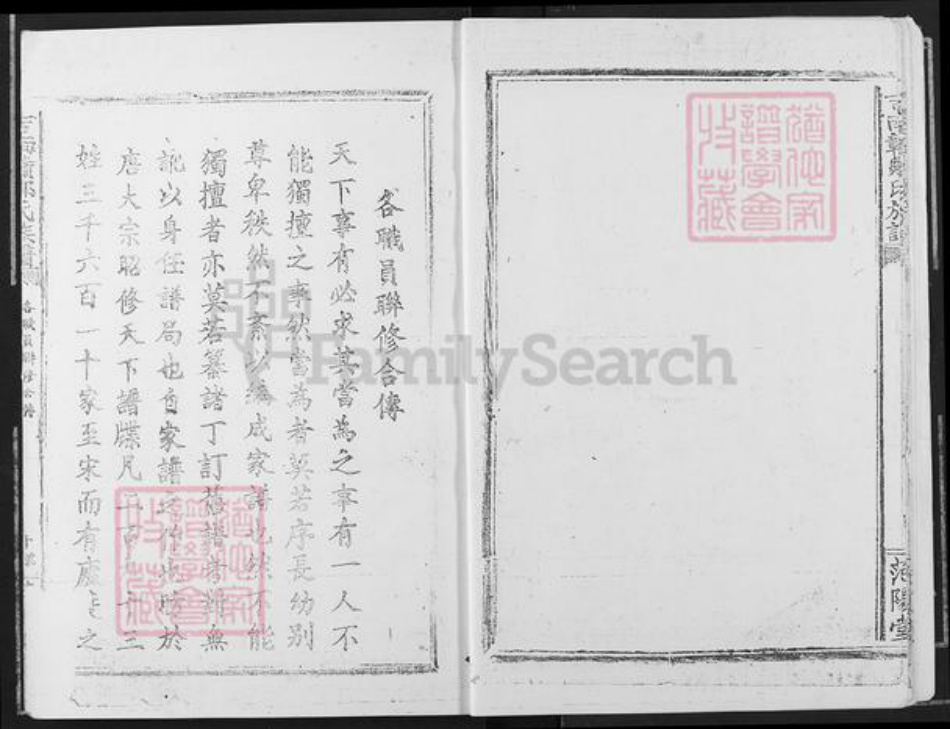 譜學會
收藏
族譜
范陽堂
各職員聯修合傳
天下事有必求其當為之事有一人不
能獨擅之事然當為者莫若序長幼別
尊卑秩然不紊以編成家譜也然不能
獨擅者亦莫若纂諸丁訂舊譜考無
訛以身任譜局也自家譜之作也昉於
唐大宗昭修天下譜牒凡二百九十三
姓三千六百一十家至宋而有廬之
氏族譜
各職員聯修合傳
FamilySearch
譜學會
收藏